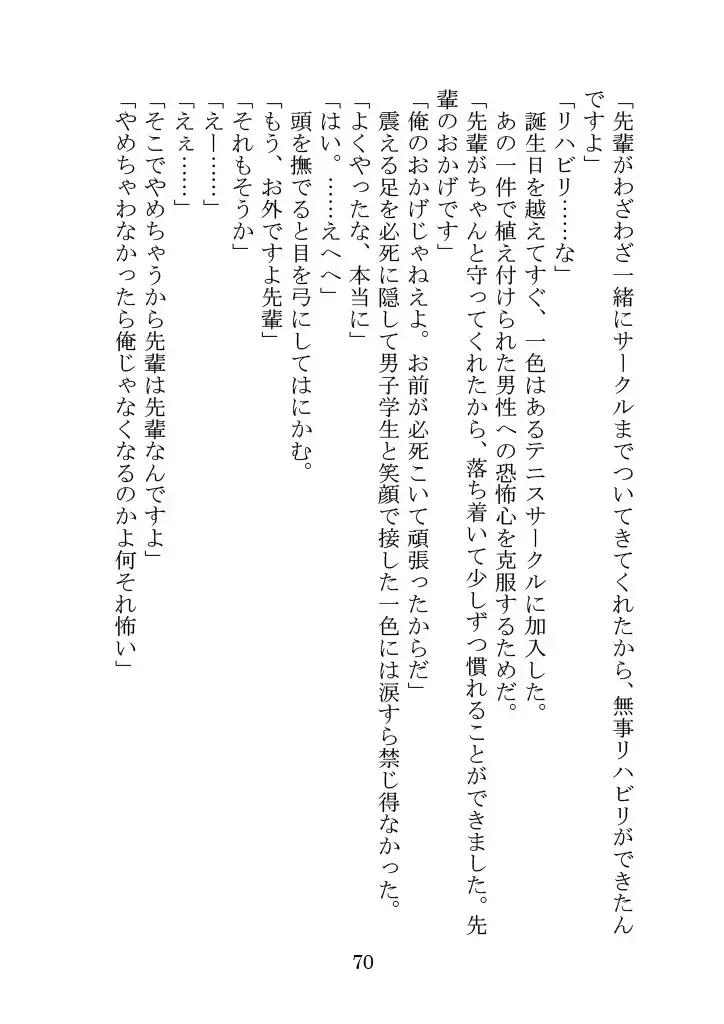 「先輩がわざわざ一緒にサークルまでついてきてくれたから、無事リハビリができたん
ですよ」
「リハビリ……な」
　誕生日を越えてすぐ、一色はあるテニスサークルに加入した。
　あの一件で植え付けられた男性への恐怖心を克服するためだ。
「先輩がちゃんと守ってくれたから、落ち着いて少しずつ慣れることができました。先
輩のおかげです」
「俺のおかげじゃねえよ。お前が必死こいて頑張ったからだ」
　震える足を必死に隠して男子学生と笑顔で接した一色には涙すら禁じ得なかった。
「よくやったな、本当に」
「はい。……えへへ」
　頭を撫でると目を弓にしてはにかむ。
「もう、お外ですよ先輩」
「それもそうか」
「えー……」
「えぇ……」
「そこでやめちゃうから先輩は先輩なんですよ」
「やめちゃわなかったら俺じゃなくなるのかよ何それ怖い」
70